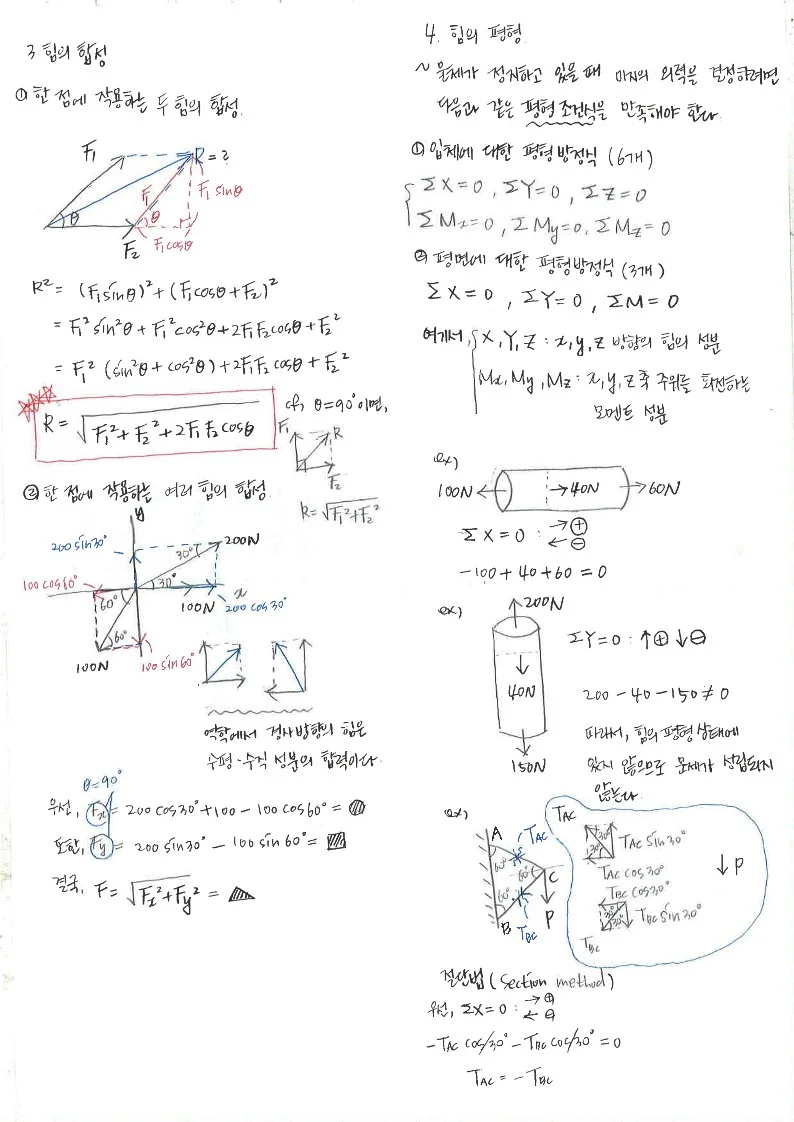 3 힘의 합성
① 한 점에 작용하는 두 힘의 합성.
F₁
R = ?
F₁
F₁ sinθ
θ
θ
F₂
F₁cosθ
R² = (F₁sinθ)² + (F₁cosθ+F₂)²
= F₁² sin²θ + F₁² cos²θ + 2F₁F₂cosθ + F₂²
= F₁² (sin²θ + cos²θ) + 2F₁F₂ cosθ + F₂²
R = √F₁² + F₂² + 2F₁F₂cosθ
cf, θ=90° 이면,
F₁
R
F₂
R = √F₁²+F₂²
② 한 점에 작용하는 여러 힘의 합성
y
200 sin30°
200N
30°
30°
100 cos60°
60°
100N
x
200 cos30°
60°
100N
100 sin60°
역학에서 경사방향의 힘은
수평·수직 성분의 합력이다.
θ=90°
우선, Fx = 200 cos30° + 100 - 100 cos60° =
또한, Fy = 200 sin30° - 100 sin60° =
결국, F = √Fx² + Fy² =
4. 힘의 평형
~ 물체가 정지하고 있을 때 미지의 외력을 결정하려면
다음과 같은 평형 조건식을 만족해야 한다.
① 입체에 대한 평형방정식 (6개)
ΣX=0, ΣY=0, ΣZ=0
ΣMx=0, ΣMy=0, ΣMz=0
② 평면에 대한 평형방정식 (3개)
ΣX=0, ΣY=0, ΣM=0
여기서, X, Y, Z : x, y, z 방향의 힘의 성분
Mx, My, Mz : x, y, z축 주위를 회전하는
모멘트 성분
ex)
100N
40N
60N
ΣX=0 : → ⊕
← ⊖
-100 + 40 + 60 = 0
ex)
200N
ΣY=0 : ↑⊕ ↓⊖
40N
200 - 40 - 150 ≠ 0
150N
따라서, 힘의 평형상태에
있지 않으므로 문제가 성립되지
않는다.
ex)
A
TAC
60°
60°
C
60°
B
TBC
P
TAC
30°
30°
TAC sin30°
TAC cos30°
TBC cos30°
30°
30°
TBC sin30°
TBC
↓P
절단법 (Section method)
우선, ΣX=0 : → ⊕
← ⊖
-TAC cos30° - TBC cos30° = 0
TAC = - TBC